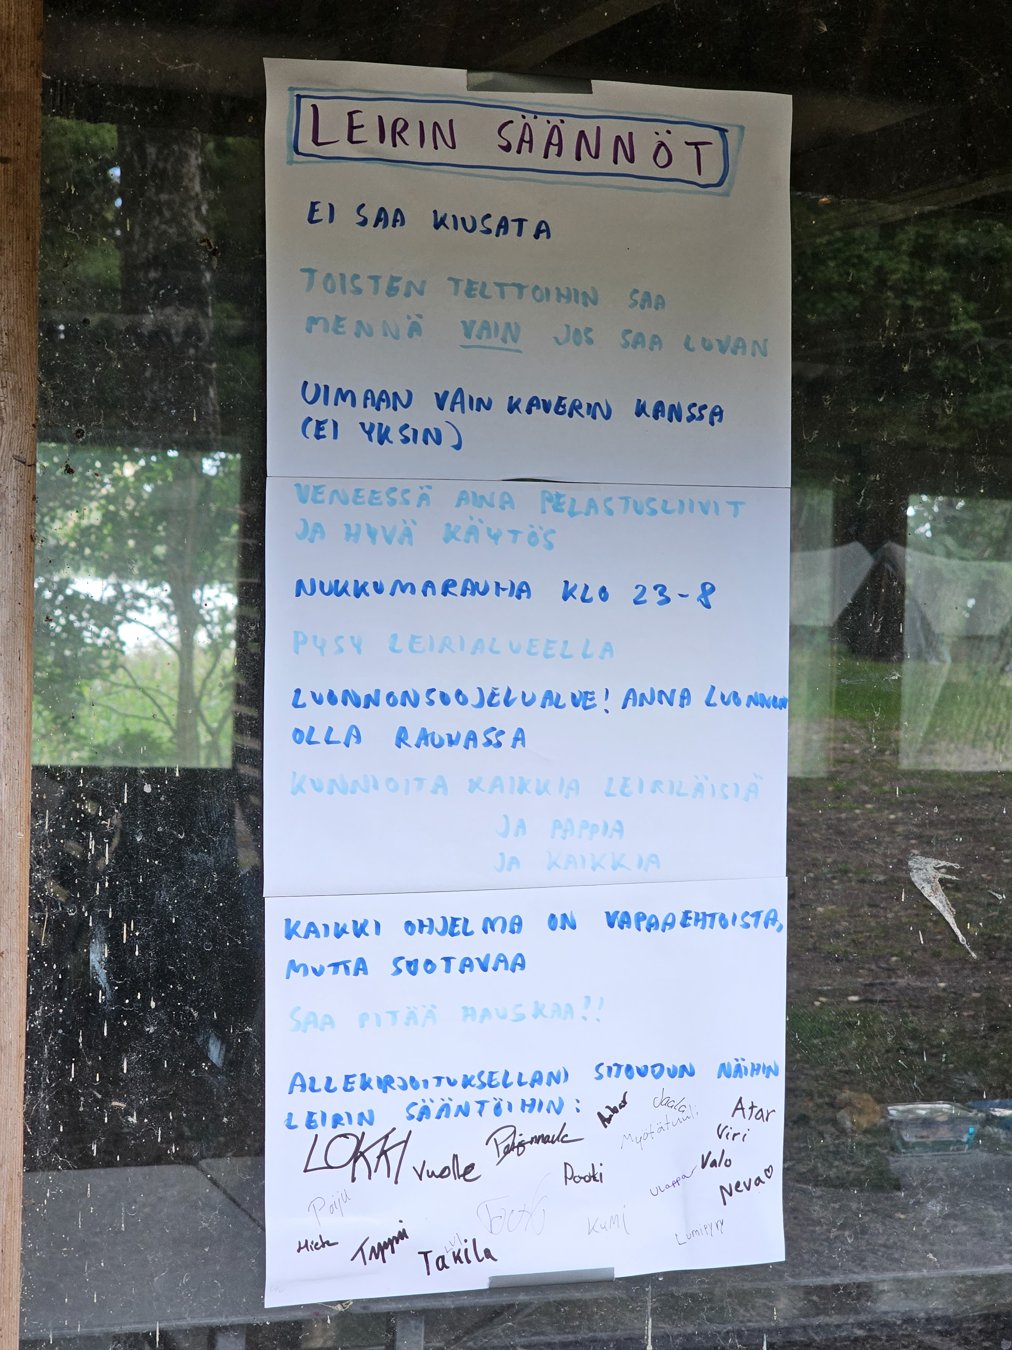 LEIRIN SÄÄNNÖT
EI SAA KIUSATA
TOISTEN TELTTOIHIN SAA
MENNÄ VAIN JOS SAA LUVAN
UIMAAN VAIN KAVERIN KANSSA
(EI YKSIN)
VENEESSÄ AINA PELASTUSLIIVIT
JA HYVÄ KÄYTÖS
NUKKUMARAUHA KLO 23-8
PYSY LEIRIALUEELLA
LUONNONSUOJELUALUE! ANNA LUONNON
OLLA RAUHASSA
KUNNIOITA KAIKKIA LEIRILÄISIÄ
JA PAPPIA
JA KAIKKIA
KAIKKI OHJELMA ON VAPAAEHTOISTA,
MUTTA SUOTAVAA
SAA PITÄÄ HAUSKAA!!
ALLEKIRJOITUKSELLANI SITOUDUN NÄIHIN
LEIRIN SÄÄNTÖIHIN:
Jaala
Atar
Myötätuuli
Viri
LOKKI
Vuolle
Pooki
Ulappa
Valo
Neva
Poiju
Kumi
Lumityry
Hieta
Tyyni
Takila